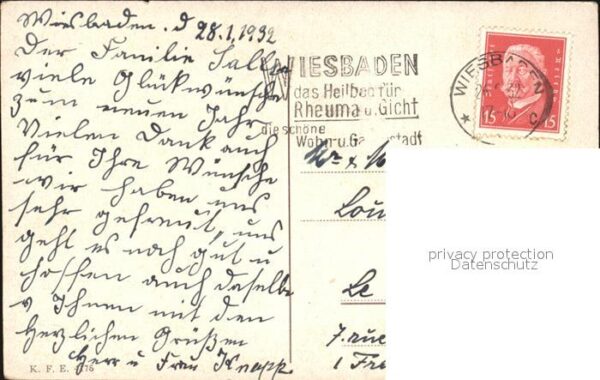 Wiesbaden. d 28.1.1932
Der Familie
viele Glückwünsche
zum neuen Jahr
Vielen Dank auch
für Ihre Wünsche
wir haben uns
sehr gefreut, uns
geht es noch gut u
hoffen auch daselbe
v Ihnen mit den
Herzlichen Grüßen
Herr u Frau Knapp
K. F. E.
WIESBADEN
das Heilbad für
Rheuma u. Gicht
die schöne
Wohn u. Ga stadt
15 15
WIESBADEN
C
Lou
Le
7. rue
1 Fre
privacy protection
Datenschutz